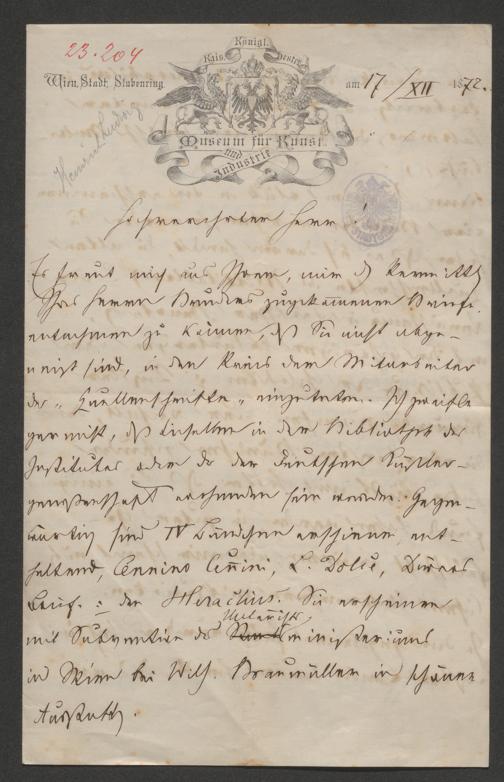 23.204
Königl.
Kais. Oesterr.
Wien, Stadt, Stubenring
am 17/XII 1872.
Museum für Kunst
und
Industrie
Hochverehrter Herr!
Es freut mich aus Ihrem, mir d
Ihres Herrn Bruders zugekommenen Briefe
entnehmen zu können, dß Sie nicht abge-
neigt sind, in den Kreis der Mitarbeiter
der „Quellenschriften" einzutreten. Ich zweifle
gar nicht, dß dieselben in der Bibliothek des
Institutes oder der deutschen Künstler-
genossenschaft vorhanden sein werden. Gegen-
wärtig sind IV Bändchen erschienen, ent-
haltend, Cennino Cennini, L. Dolce, Dürers
Brief. : den Heraclius. Sie erscheinen
mit Subvention des Unterrichts
ministeriums
in Wien bei Wilh. Braumüller in schöner
Ausstattg.